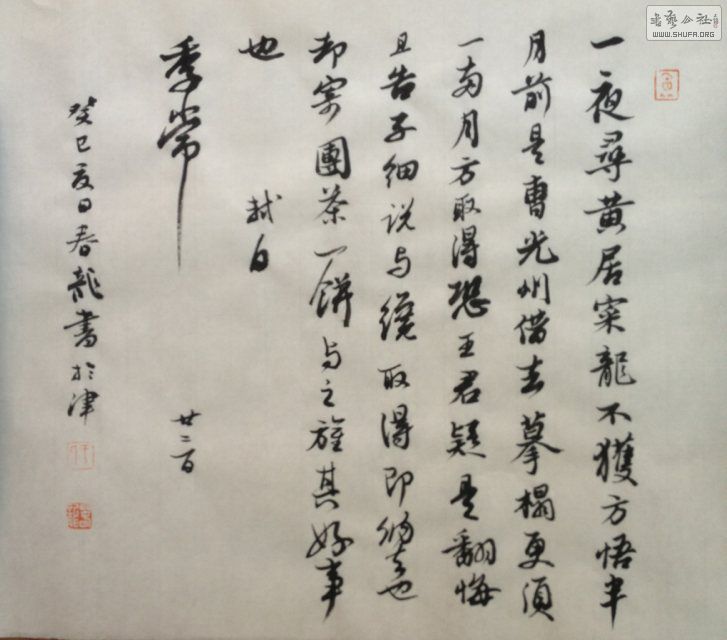 一夜尋黄居寀龍不獲方悟半
月前是曹光州借去摹榻更須
一兩月方取得恐王君疑是翻悔
且告子細说与纔取得即納去也
却寄團茶一餅与之旌其好事
也
軾白
季常
廿三日
癸巳夏日春龍書於津
書藝公社
WWW.SHUFA.ORG